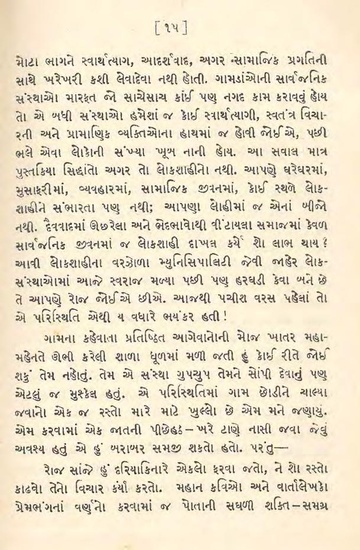 [ ૧૫ ]
મોટા ભાગને સ્વાર્થત્યાગ, આદર્શવાદ, અગર સામાજિક પ્રગતિની
સાથે ખરેખરી કશી લેવાદેવા નથી હોતી. ગામડાંઓની સાર્વજનિક
સંસ્થાઓ મારફત જો સાચેસાચ કાંઈ પણ નગદ કામ કરાવવું હોય
તો એ બધી સંસ્થાઓ હમેશાં જ કોઈ સ્વાર્થત્યાગી, સ્વતંત્ર વિચા-
રની અને પ્રામાણિક વ્યક્તિઓના હાથમાં જ હોવી જોઈએ, પછી
ભલે એવા લોકોની સંખ્યા ખૂબ નાની હોય. આ સવાલ માત્ર
પુસ્તકિયા સિદ્ધાંતો અગર તો લોકશાહીનો નથી. આપણે ઘરેઘરમાં,
મુસાફરીમાં, વ્યવહારમાં, સામાજિક જીવનમાં, કોઈ સ્થળે લોક-
શાહીને સંભારતા પણ નથી; આપણા લોહીમાં જ એનાં બીજો
નથી. દૈવવાદમાં ઊછરેલા અને ભેદભાવોથી વીંટાયલા સમાજમાં કેવળ
સાર્વજનિક જીવનમાં જ લોકશાહી દાખલ કર્યે શો લાભ થાય?
આવી લોકશાહીના વરઘોળા મ્યુનિસિપાલિટી જેવી જાહેર લોક-
સંસ્થાઓમાં આજે સ્વરાજ મળ્યા પછી પણ હરઘડી કેવા બને છે
તે આપણે રોજ જોઈએ છીએ. આજથી પચીશ વરસ પહેલાં તો
એ પરિસ્થિતિ એથી ય વધારે ભયંકર હતી!
ગામના કહેવાતા પ્રતિષ્ઠિત આગેવાનોની મોજ ખાતર મહા-
મહેનતે ઊભી કરેલી શાળા ધૂળમાં મળી જતી હું કોઈ રીતે જોઈ
શકું તેમ નહોતું. તેમ એ સંસ્થા ગુપચુપ તેમને સોંપી દેવાનું પણ
એટલું જ મુશ્કેલ હતું. એ પરિસ્થિતિમાં ગામ છોડીને ચાલ્યા
જવાનો એક જ રસ્તો મારે માટે ખુલ્લો છે એમ મને જણાયું.
એમ કરવામાં એક જાતની પીછેહઠ – ખરે ટાણે નાસી જવા જેવું
અવશ્ય હતું એ હું બરાબર સમજી શકતો હતો. પરંતુ—
રોજ સાંજે હું દરિયાકિનારે એકલો ફરવા જતો, ને શો રસ્તો
કાઢવો તેનો વિચાર કર્યા કરતો. મહાન કવિઓ અને વાર્તાલેખકો
પ્રેમભંગનાં વર્ણનો કરવામાં જ પોતાની સઘળી શક્તિ – સમગ્ર